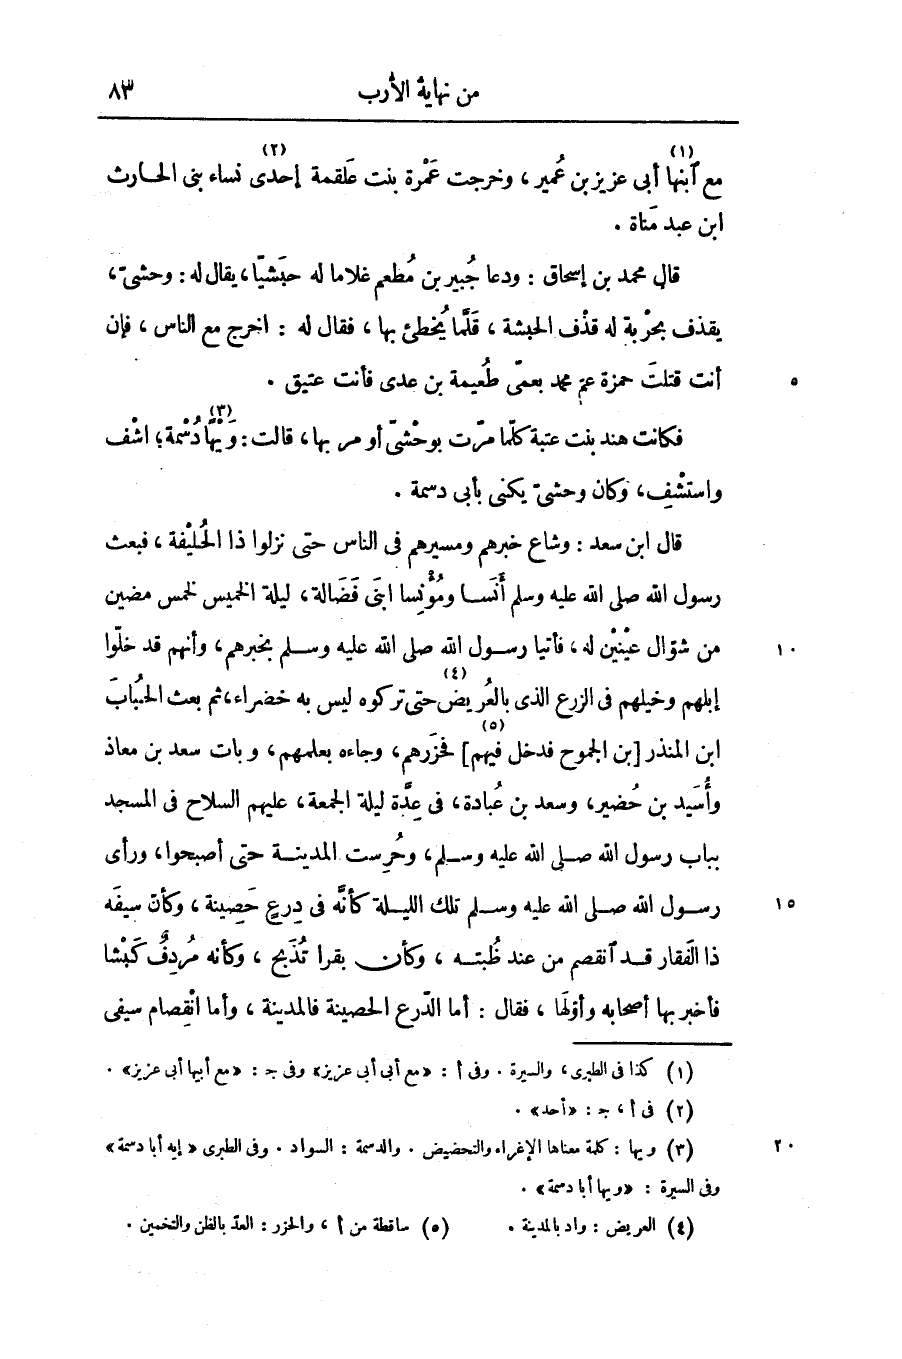 من نهاية الأرب ٨٣
مع ٱبنها(١) أبى عزيز بن عُمير، وخرجت عَمْرة بنت عَلقمة إحدى(٢) نساء بنى الحارث
ابن عبد مَناة .
قال محمد بن إسحاق : ودعا جُبير بن مُطعم غلاما له حبَشيّا، يقال له : وحشىّ،
يقذف بحرْبة له قذْف الحبشة ، قَلَّما يُخطئ بها ، فقال له : اخرج مع الناس ، فإن
٥ أنت قتلتَ حمزة عمّ محمد بعمّى طُعيمة بن عدى فأنت عتيق .
فكانت هند بنت عتبة كلّما مرّت بوحْشىّ أو مر بها، قالت : وَيْهًا(٣) دُسْمة؛ اشْف
واستشْفِ، وكان وحشىّ يكنى بأبى دسمة .
قال ابن سعد : وشاع خبرهم ومسيرهم فى الناس حتى نزلوا ذا الحُليْفة ، فبعث
رسول الله صلى الله عليه وسلم أَنَسا ومُؤْنِسا ابنَى فَضَالة، ليلة الخميس لخمس مضين
١٠ من شوّال عيْنَيْن له، فأتيا رسول الله صلى الله عليه وسلم بخبرهم، وأنهم قد خلّوا
إبلهم وخيلهم فى الزرع الذى بالعُريض(٤) حتى تركوه ليس به خضراء، ثم بعث الحُبابَ
ابن المنذر [بن الجموح فدخل فيهم](٥) فحزَرهم، وجاءه بعلمهم، وبات سعد بن معاذ
وأُسَيد بن حُضير، وسعد بن عُبادة، فى عِدَّة ليلة الجمعة، عليهم السلاح فى المسجد
بباب رسول الله صلى الله عليه وسلم، وحُرِست المدينة حتى أصبحوا، ورأى
١٥ رسول الله صلى الله عليه وسلم تلك الليلة كأنّه فى دِرع حَصِينة ، وكأن سيفَه
ذا الفَقار قد ٱنقصم من عند ظُبته ، وكأن بقرا تُذْبح ، وكأنه مُردِفٌ كَبْشا
فأخبر بها أصحابه وأوّلَها ، فقال : أما الدّرع الحصينة فالمدينة ، وأما انْقِصام سيفى
(١) كذا فى الطبرى، والسيرة . وفى أ : «مع أبى أبى عزيز» وفى جـ : «مع أبيها أبى عزيز» .
(٢) فى أ ، جـ : «أحد» .
٢٠ (٣) ويها : كلمة معناها الإغراء والتحضيض . والدسمة : السواد . وفى الطبرى «إيه أبا دسمة»
وفى السيرة : «ويها أبا دسمة» .
(٤) العريض : واد بالمدينة . (٥) ساقطة من أ ، والحزر : العدّ بالظن والتخمين .